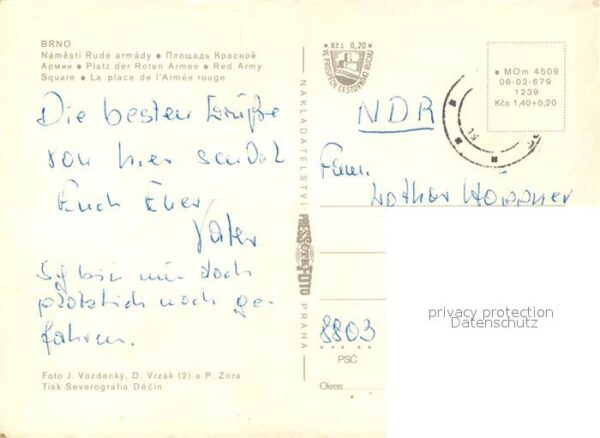 BRNO
Náměstí Rudé armády ● Площадь Красной
Армии ● Platz der Roten Armee ● Red Army
Square ● La place de l'Armée rouge
Die besten Grüße
von hier sendet
Euch Euer
Vater
Ich bin nur doch
plötzlich noch ge-
fahren.
Foto J. Vozdecký, D. Vrzák (2) a P. Zora
Tisk Severografia Děčín
NAKLADATELSTVÍ
PRESSFOTO
PRAHA
● Kčs 0,20 ●
VE PROSPĚCH CESTOVNÍHO RUCHU
● MOm 4509
06-02-679
1239
Kčs 1,40+0,20
NDR
Fam.
Lothar Höppner
8803
PSČ
Okres:
privacy protection
Datenschutz